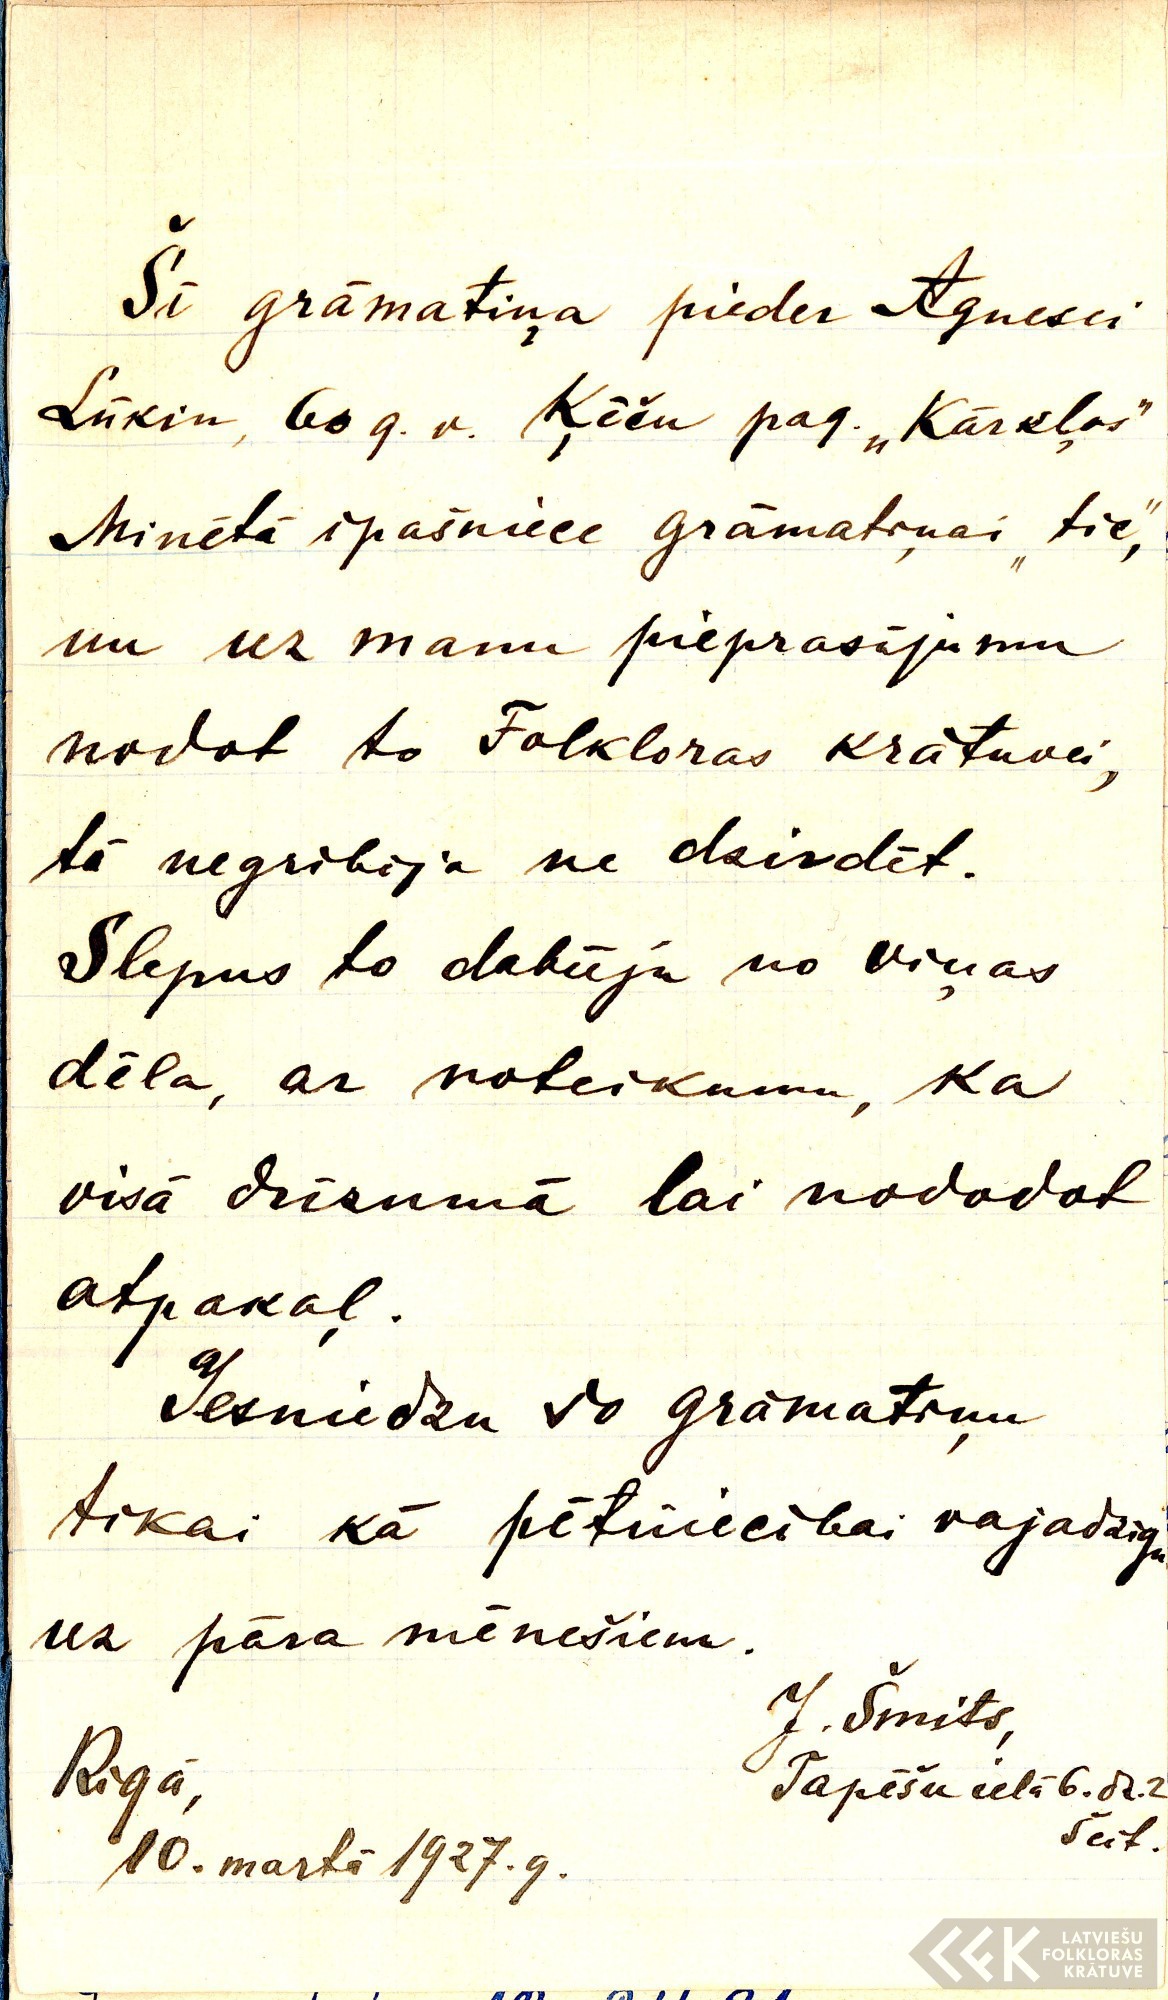 Šī grāmatiņa pieder Agnesei
Lūkin, 60 g. v. Ķēču pag. „Kārkļos"
Minētā īpašniece grāmatiņai „tic",
un uz manu pieprasījumu
nodot to Folkloras krātuvei,
tā negribēja ne dzirdēt.
Slepus to dabūju no viņas
dēla, ar noteikumu, ka
visā drīzumā lai nododot
atpakaļ.
Iesniedzu šo grāmatiņu
tikai kā pētniecībai vajadzīgu
uz pāra mēnešiem.
J. Šmits,
Tapešu ielā 6. dz. 2
šeit.
Rīgā,
10. martā 1927. g.
LATVIEŠU
FOLKLORAS
KRĀTUVE